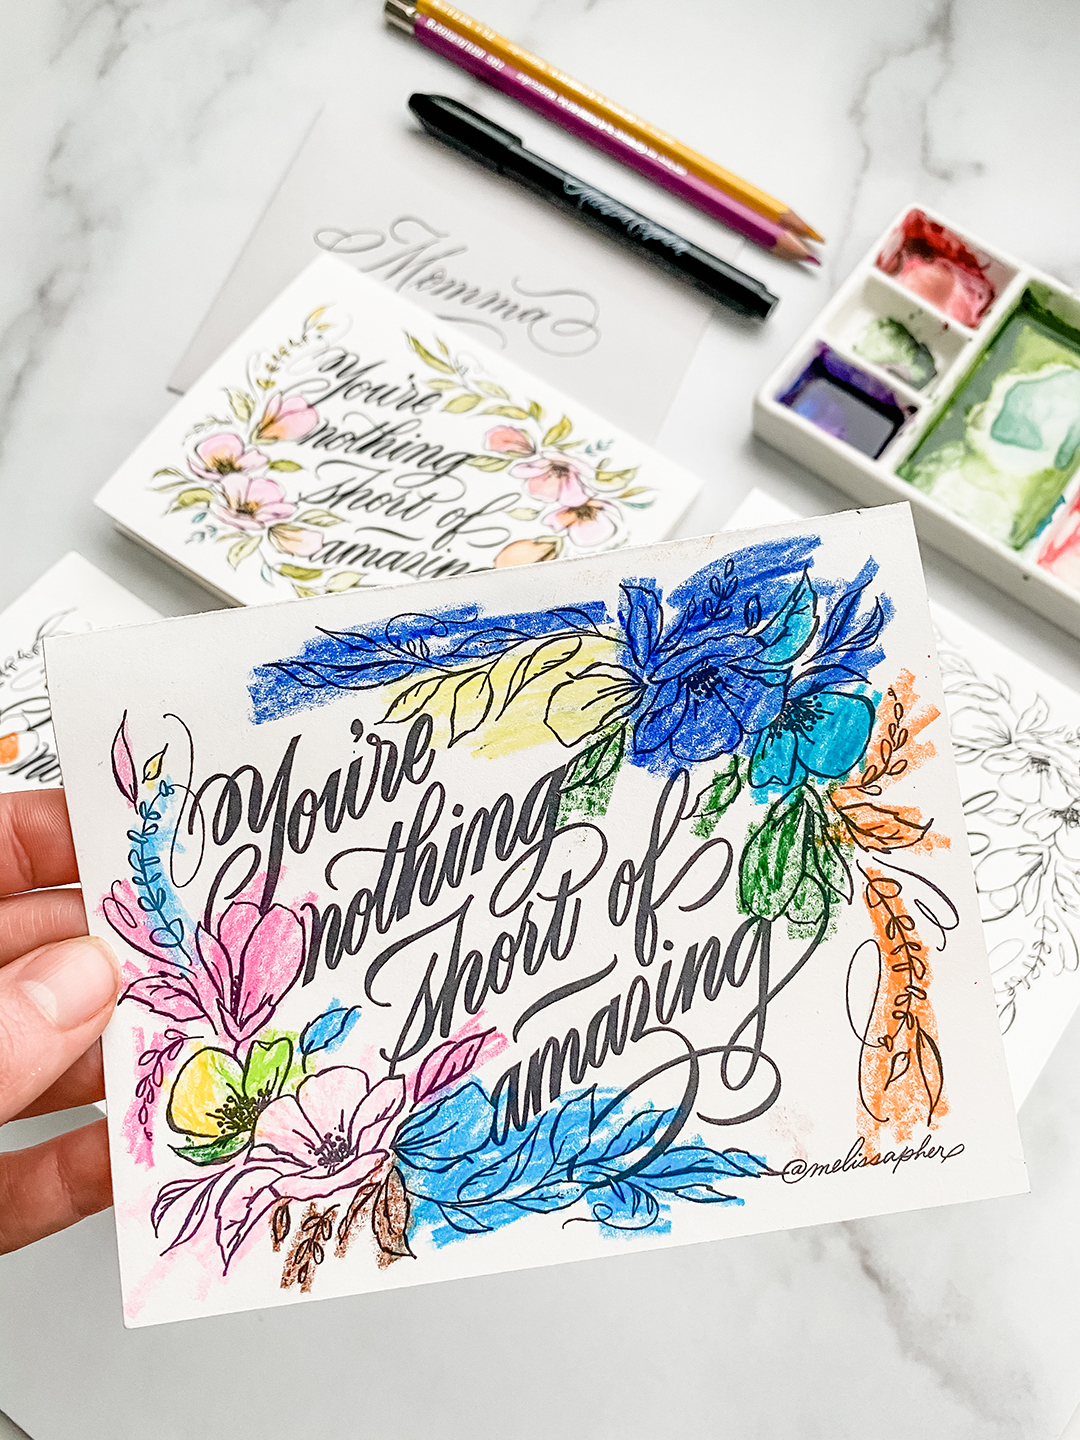 Momma
You're
nothing
short of
amazing
You're
nothing
short of
amazing
@melissapher
no